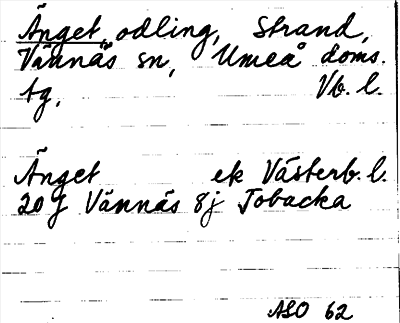 Änget, odling, Strand,
Vännäs sn, Umeå doms.
tg, Vb. l.
Änget ek Västerb. l.
20 J Vännäs 8j Tobacka
ASO 62